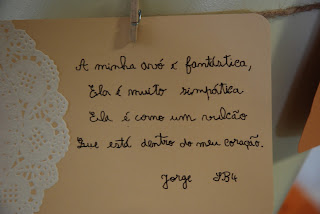 A minha avó é fantástica,
Ela é muito simpática
Ela é como um vulcão
Que está dentro do meu coração.
Jorge 3B4